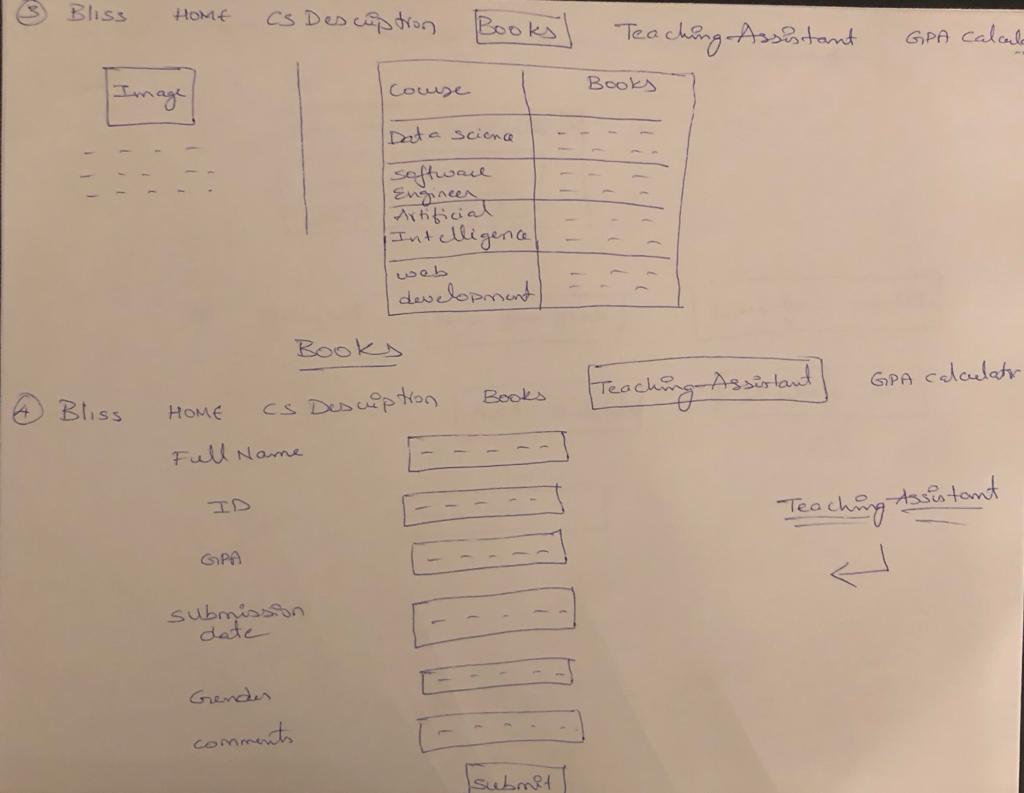 3 Bliss HOME CS Description Books Teaching-Assistant GPA Calcul
Image
Course Books
Data science
Software
Engineer
Artificial
Intelligence
web
development
Books
4 Bliss HOME CS Description Books Teaching-Assistant GPA calculator
Full Name
ID
Teaching-Assistant
GPA
submission
date
Gender
comments
submit